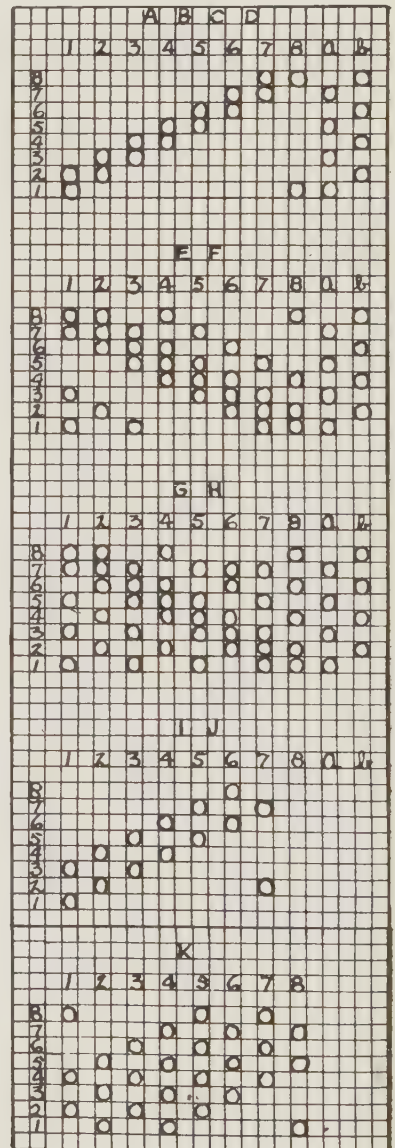 A B C D
1 2 3 4 5 6 7 8 a b
8
7
6
5
4
3
2
1
E F
1 2 3 4 5 6 7 8 a b
8
7
6
5
4
3
2
1
G H
1 2 3 4 5 6 7 8 a b
8
7
6
5
4
3
2
1
I J
1 2 3 4 5 6 7 8 a b
8
7
6
5
4
3
2
1
K
1 2 3 4 5 6 7 8
8
7
6
5
4
3
2
1